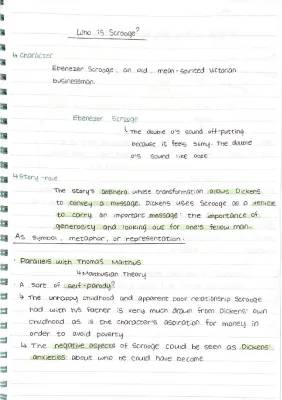 Who is Scrooge?
↳ Character
Ebenezer Scrooge, an old, mean-spirited Victorian
businessman.
Ebenezer Scrooge
↳ The double o's sound off-putting
because it feels slimy. The double
o's sound like ooze
↳ Story-role
The story's antihero whose transformation allows Dickens
to convey a message. Dickens uses Scrooge as a vehicle
to carry an important message: the importance of
generosity and looking out for one's fellow man.
As symbol, metaphor, or representation:
· Parallels with Thomas Malthus
↳ Malthusian Theory
· A sort of self-parody?
↳ The unhappy childhood and apparent poor relationship Scrooge
had with his father is very much drawn from Dickens' own
childhood as is the character's aspiration for money in
order to avoid poverty.
↳ The negative aspects of Scrooge could be seen as Dickens'
anxieties about who he could have become